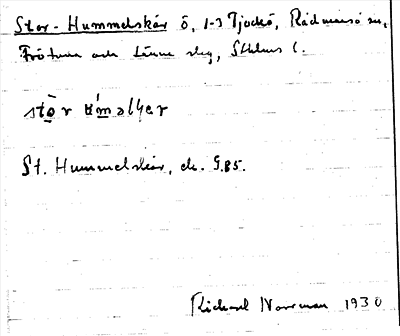 Stor-Hummelskär ö, 1-3 Tjockö, Rådmansö sn,
Frötuna och Länna slg, Sthlms l.
St. Hummelskär, ek. G.85.
Rickard Norrman 1930